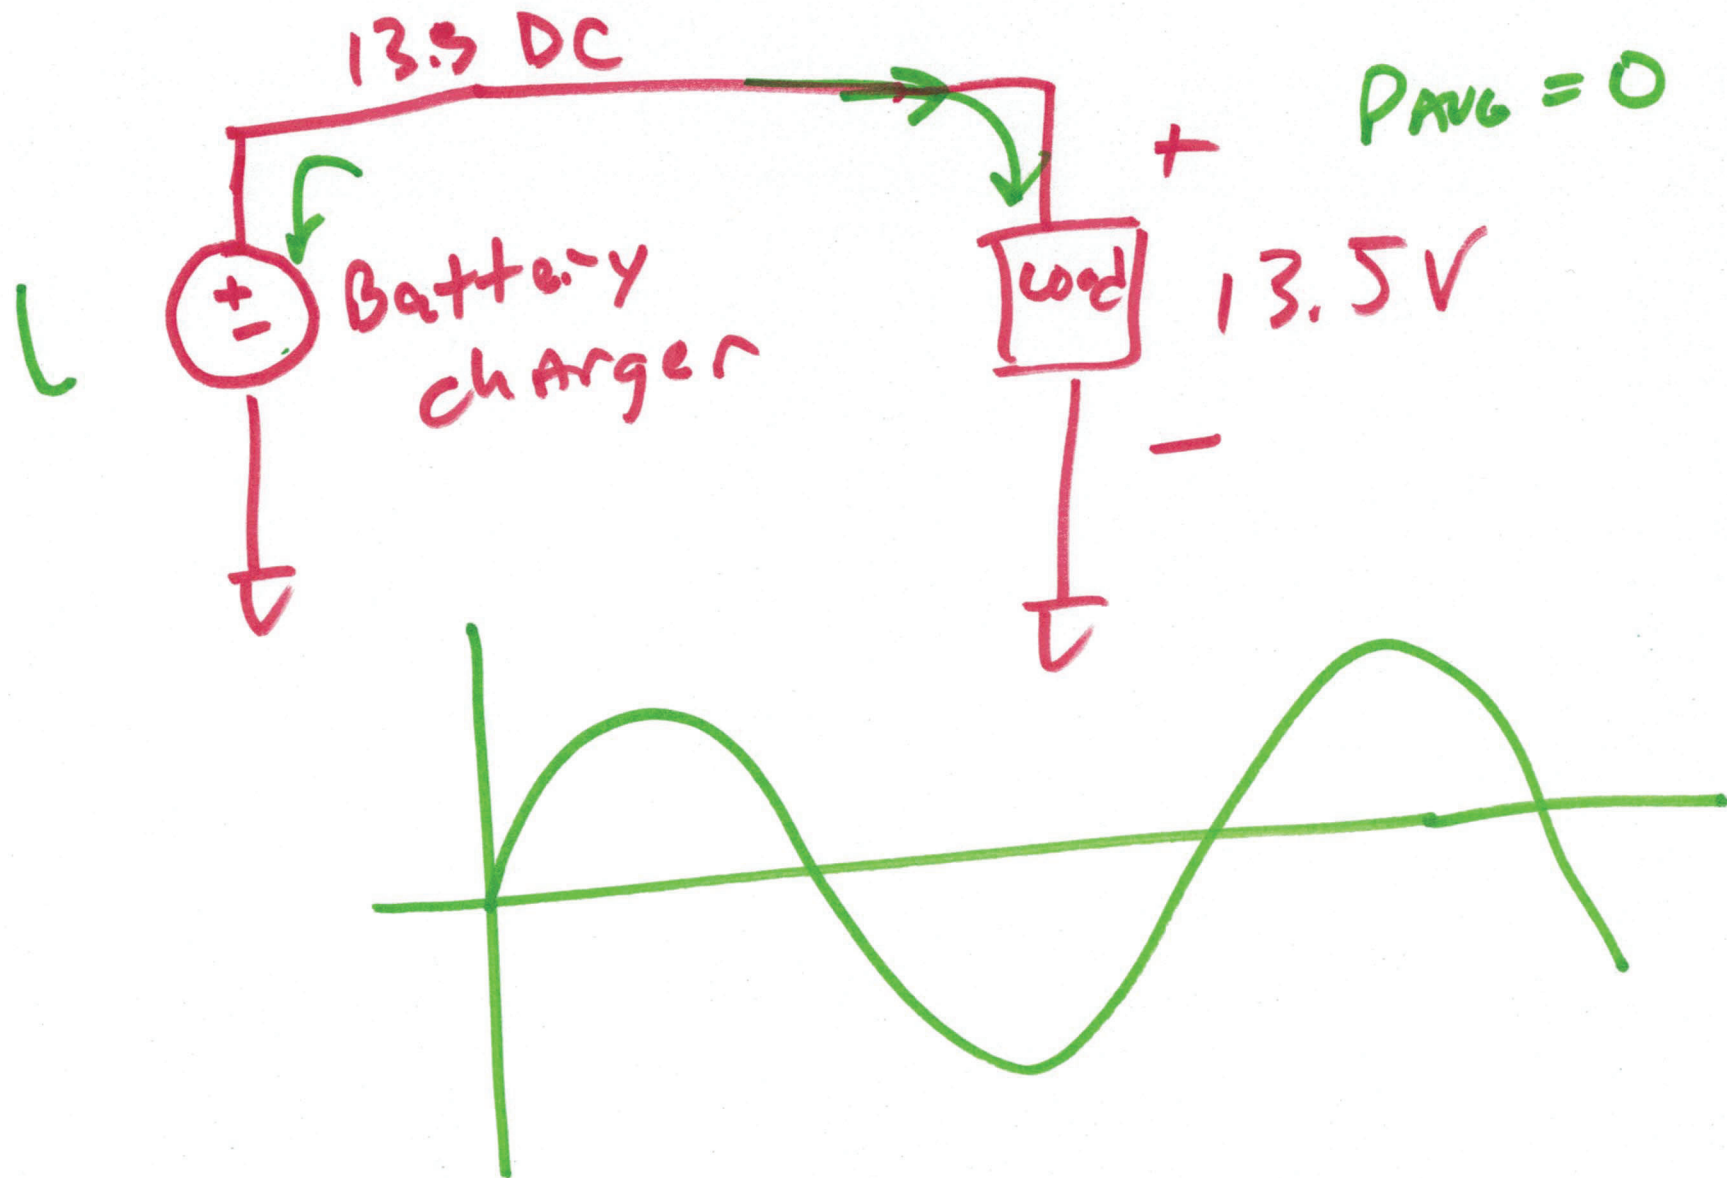 13.5 DC
PAVG = 0
+
+
-
Battery
charger
Load
13.5V
-